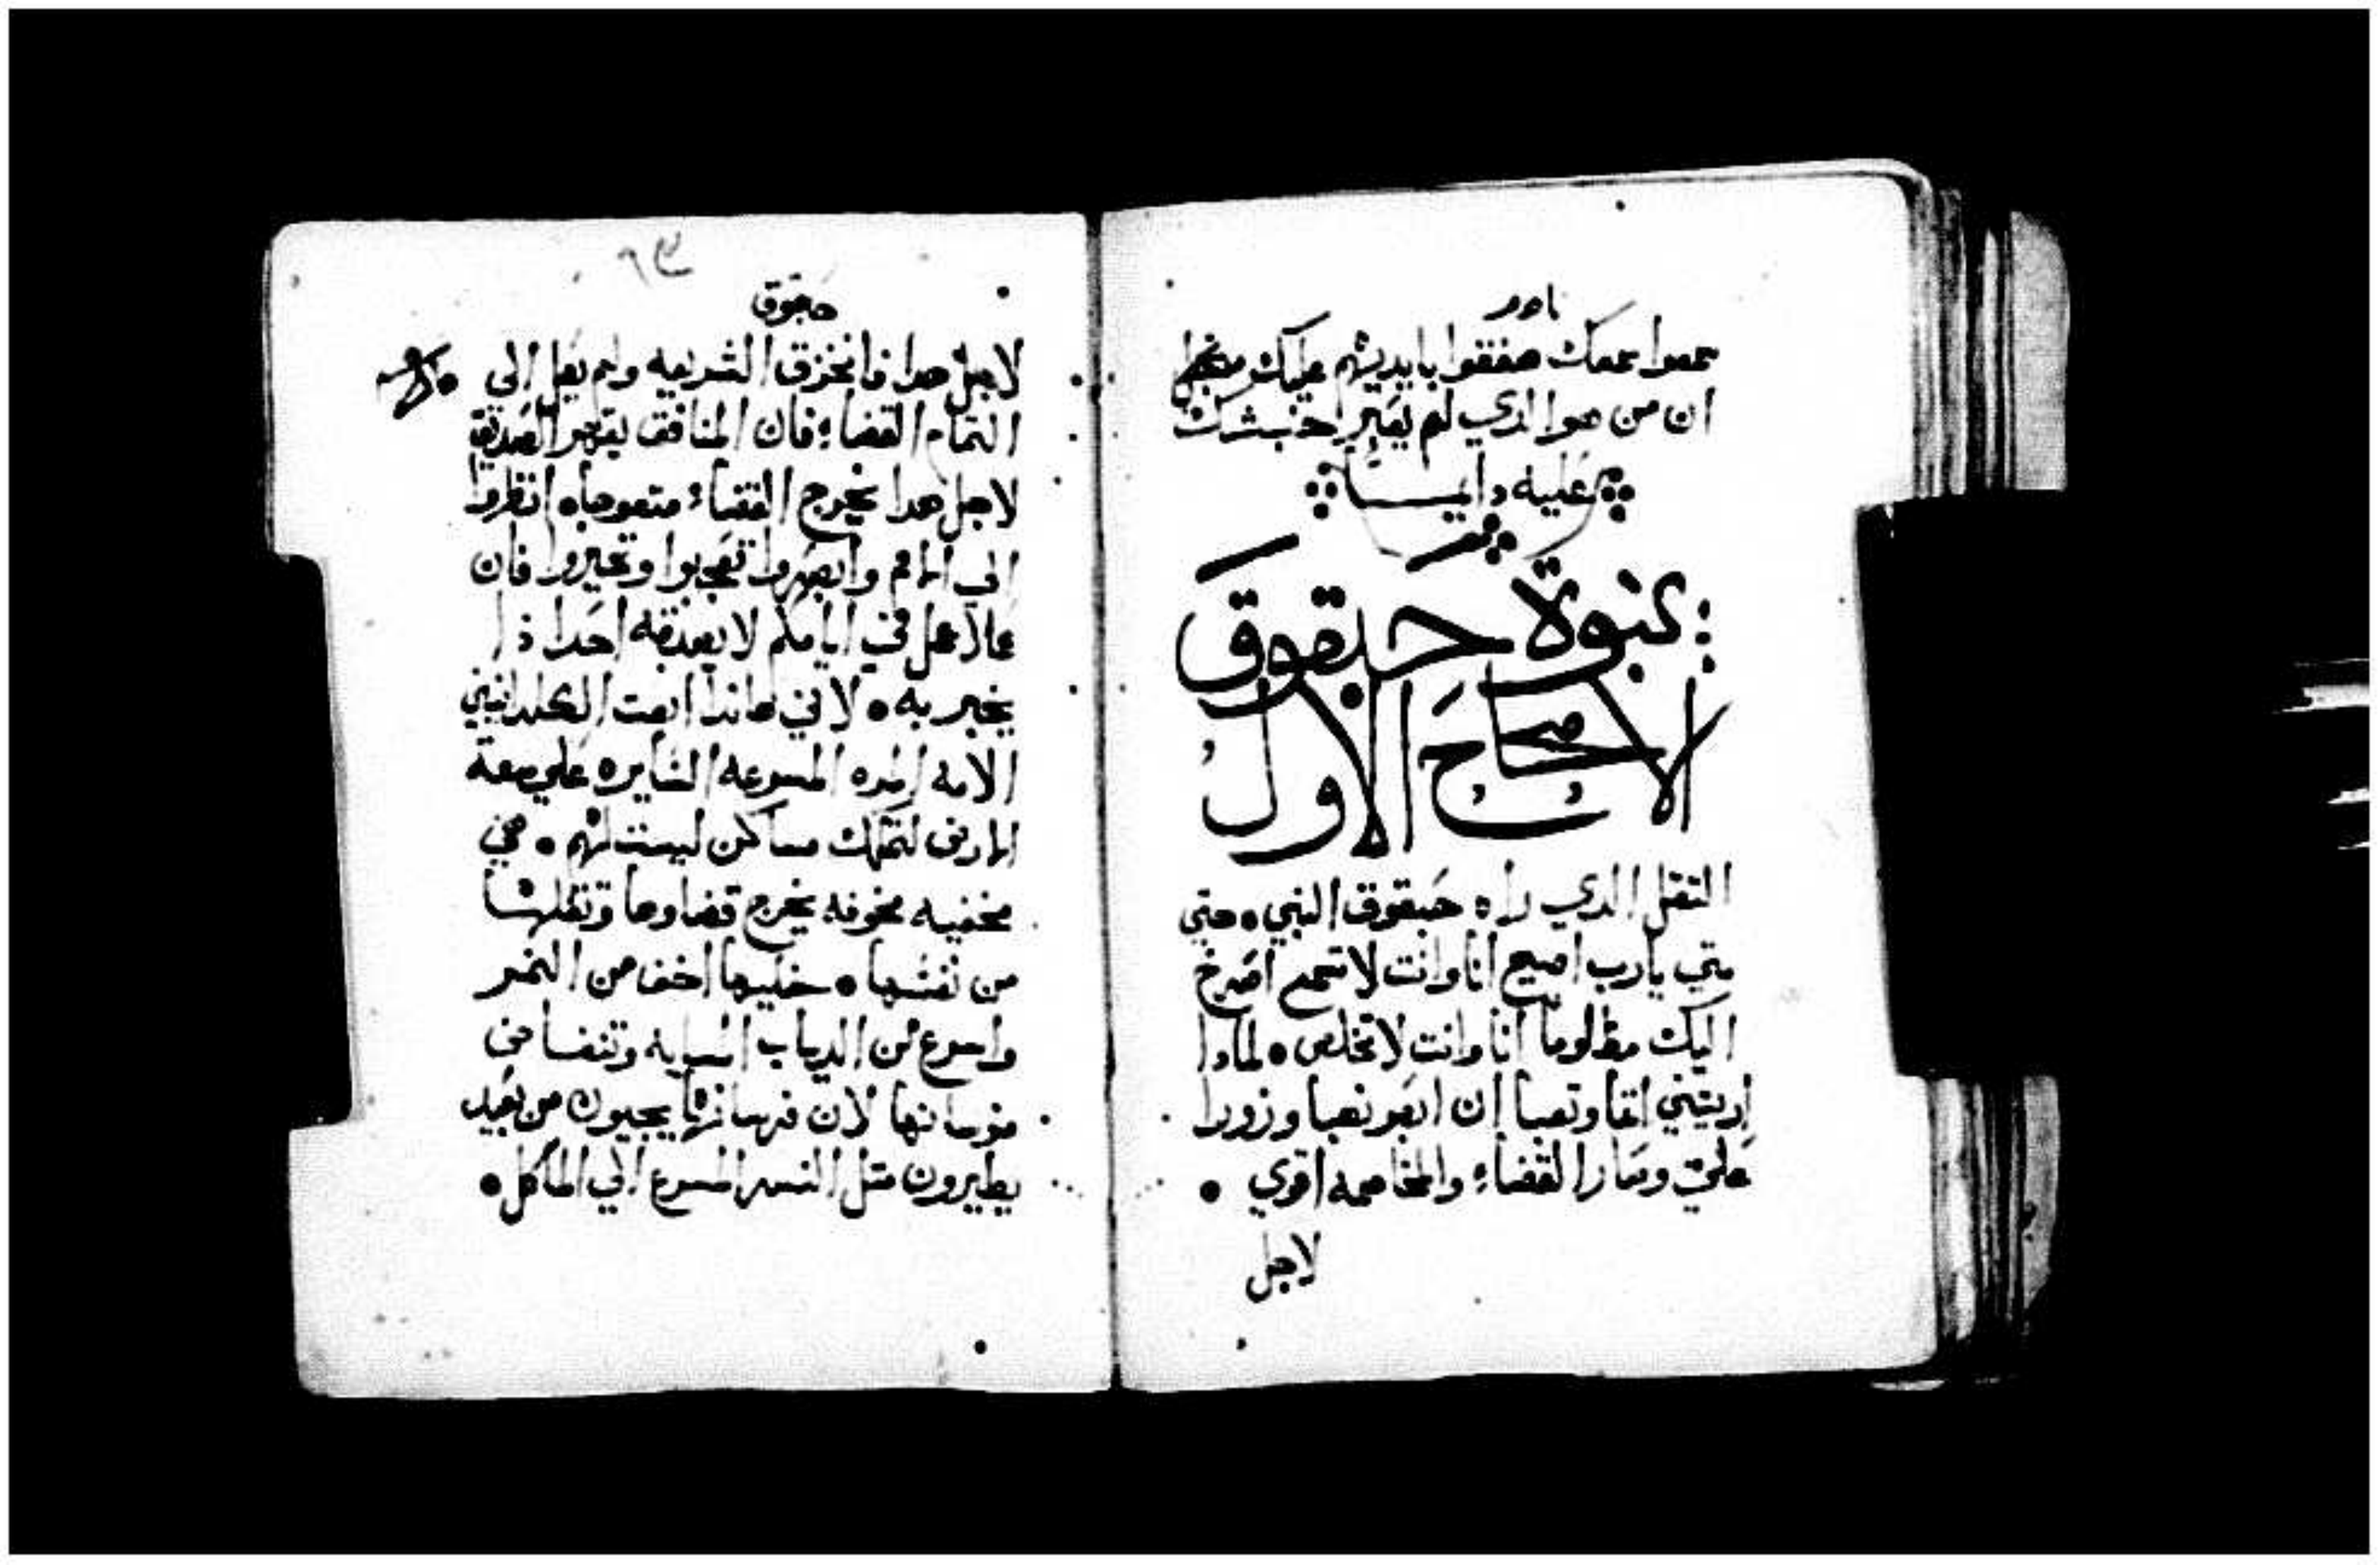 سمعوا سمعك صفقوا بايديهم عليك من اجل
ان من هوا الدي لم يعبر اخذ شرك
عليه دايما
نبوة حبقوق
الاصحاح الاول
التقل الدي راه حبقوق النبي • حتي
متي يارب اصيح انا وانت لا تسمع اصرخ
اليك مظلوما انا وانت لا تخلص • لمادا
اريتني اتما وتعبا ان ابصر نهبا وزورا
علي وصار القضاء والمخاصمه اقوي •
لاجل
حبقوق
لاجل هدا فانخزق الشريعه ولم يصل الي
التمام القضاء فان المنافق يقهر الصديق
لاجل هدا يخرج القضاء متعوجا • انظروا
الي الامم وابصروا تعجبوا وتحيروا فان
عملا عمل في ايامكم لا يصدقه احدا ذا
يخبر به • لاني هاندا ابعت الكلدانيين
الامه المره المسرعه السايره علي سعة
الارض لتمتلك مساكن ليست لهم • هي
مخفيه مخوفه يخرج قضاوها وتقلها
من نفسها • خليها اخف من النمر
واسرع من الدياب المسايه وتنفسا في
فرسانها لان فرسانها يجيون من بعيد
يطيرون متل النسر المسرع الي الماكل •